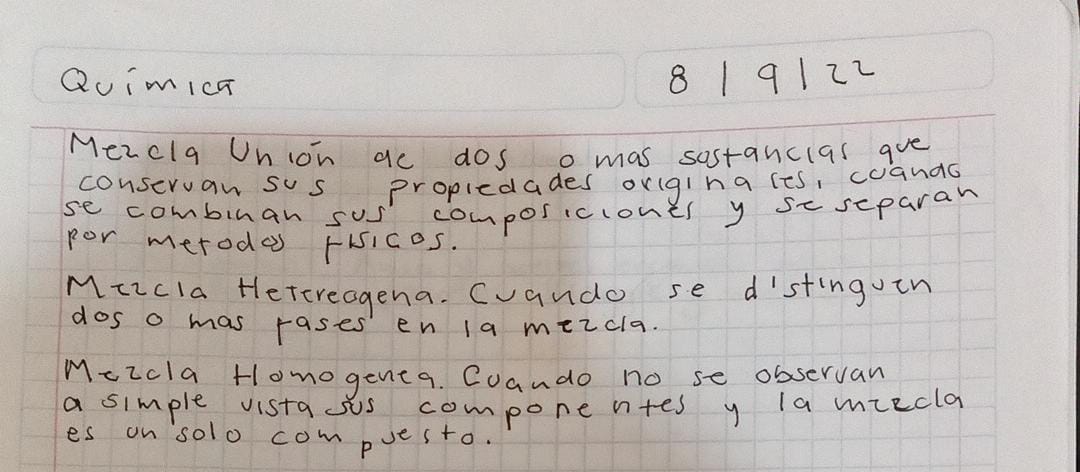 Química
8/9/22
Mezcla Unión de dos o mas sustancias que
conservan sus propiedades originales, cuando
se combinan sus composiciones y se separan
por metodos fisicos.
Mezcla Hetereogena. Cuando se distinguen
dos o mas fases en la mezcla.
Mezcla Homogenea. Cuando no se observan
a simple vista sus componentes y la mezcla
es un solo compuesto.